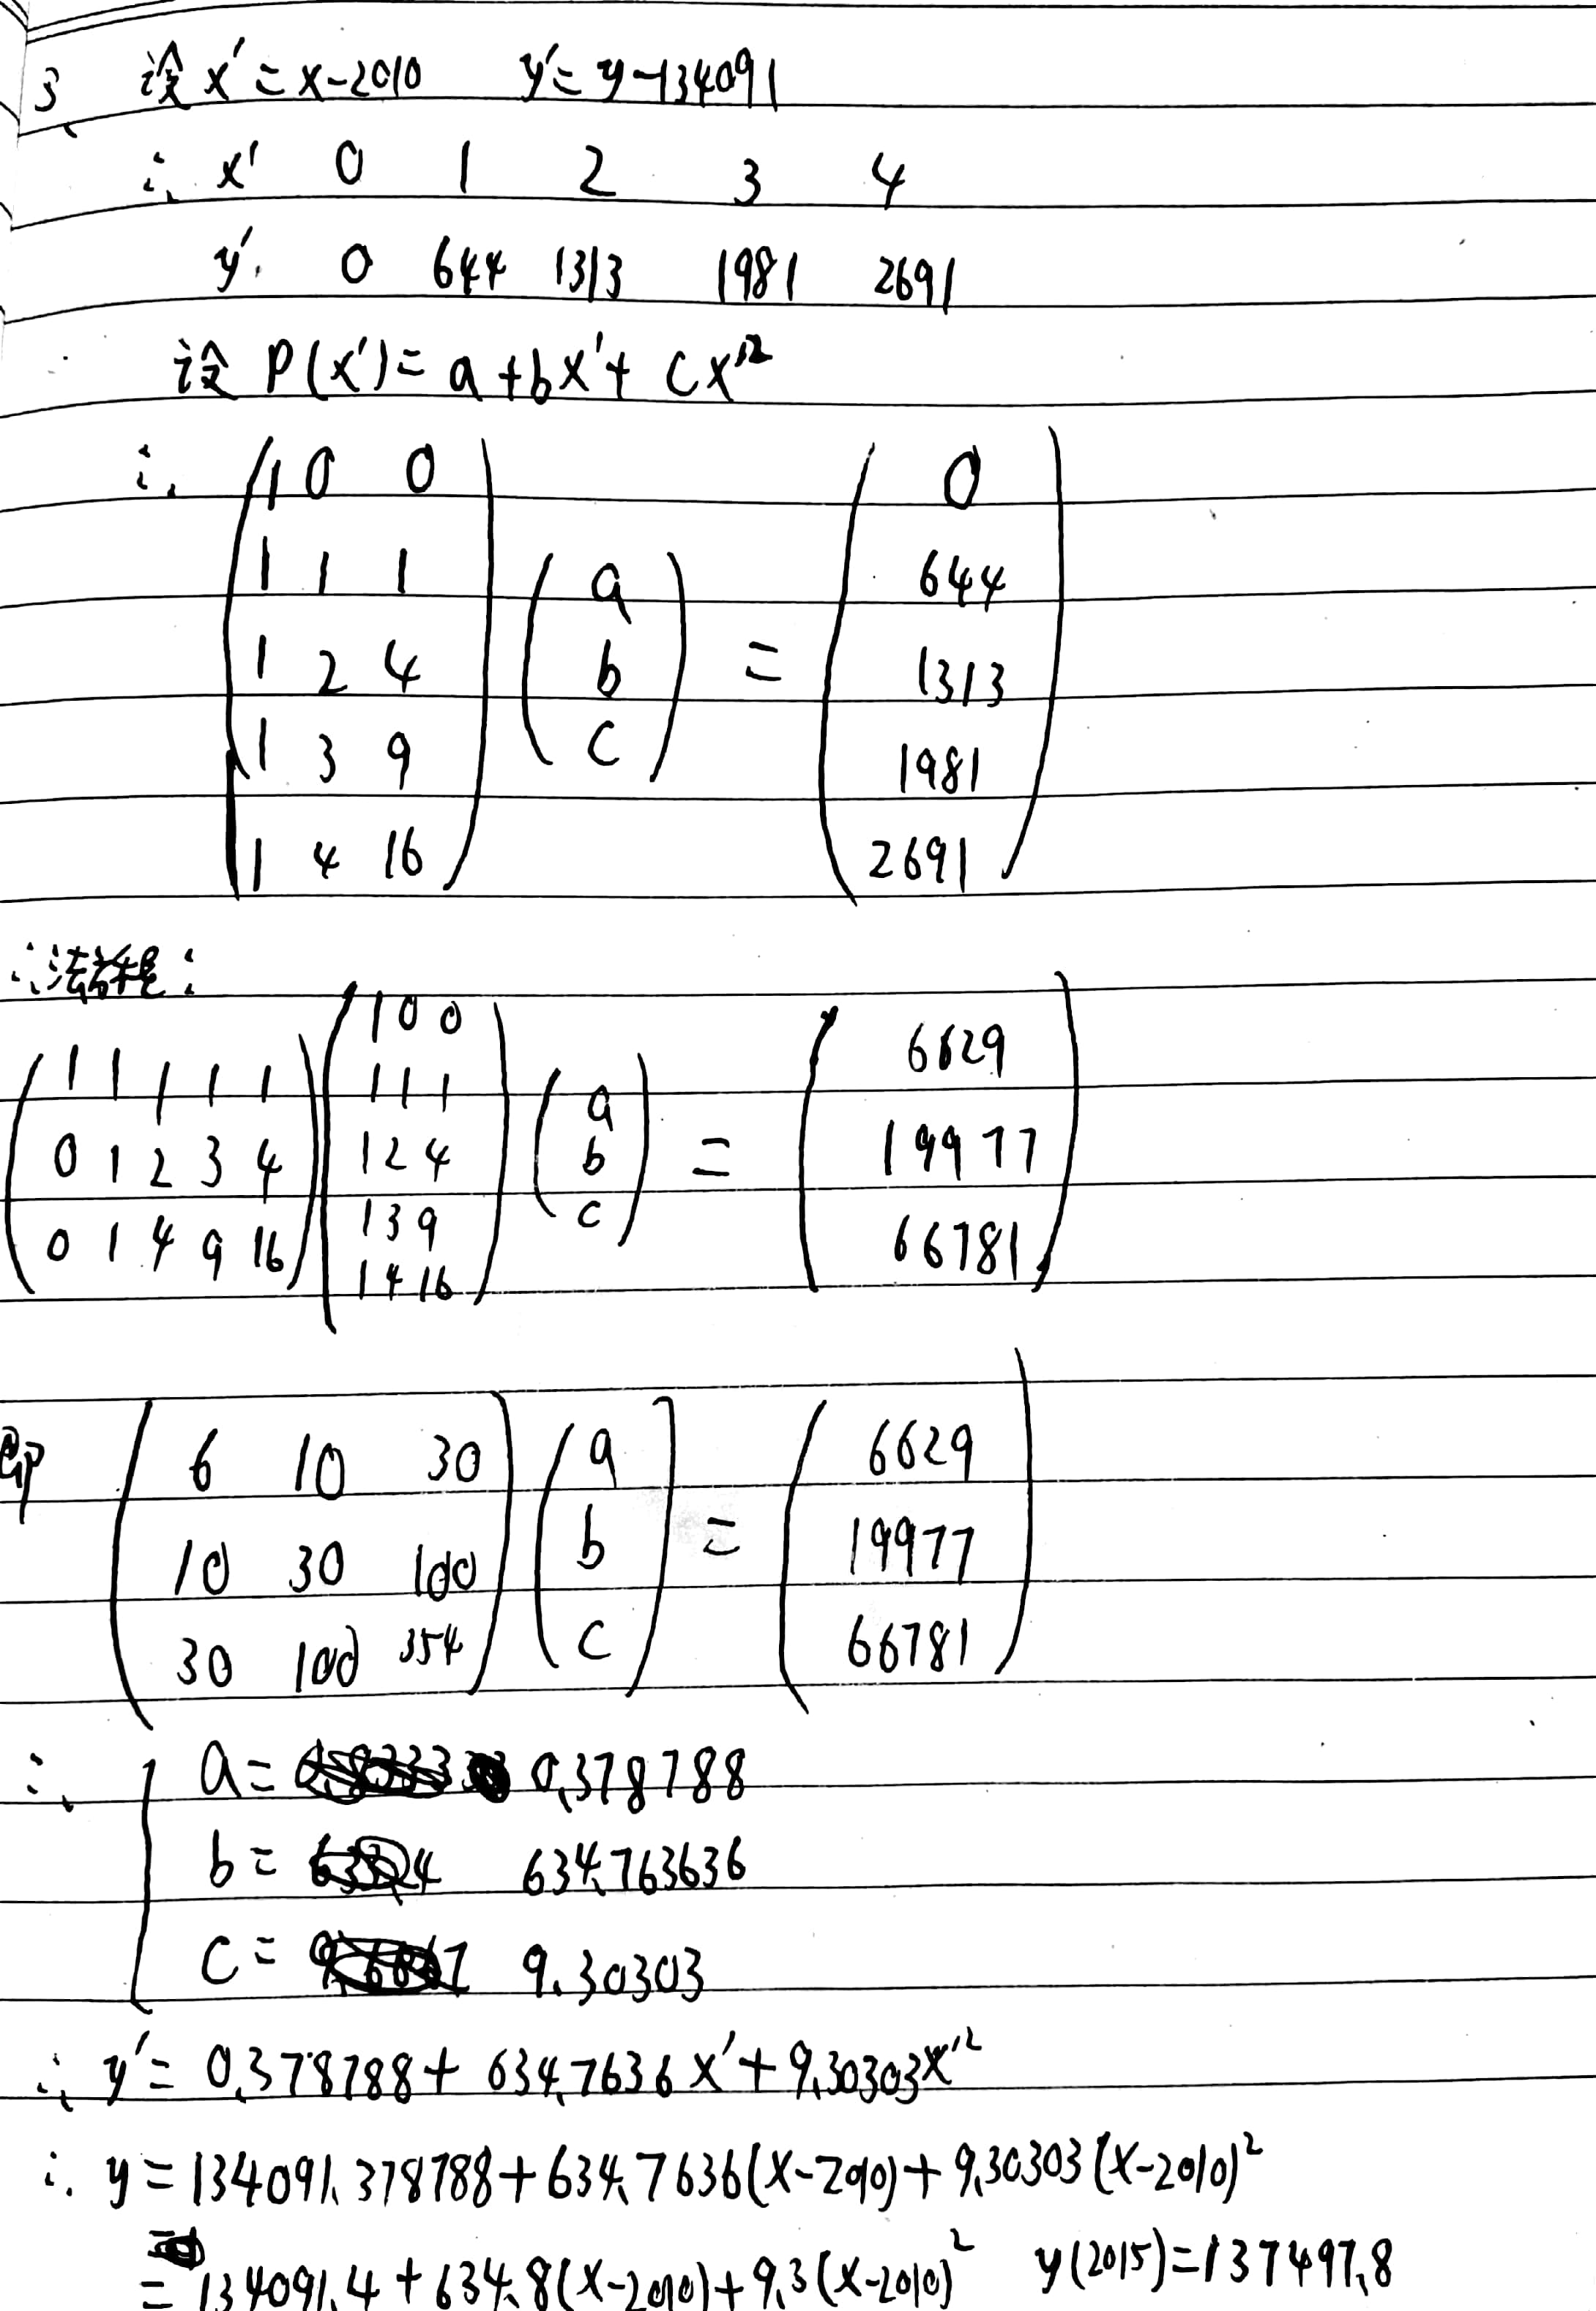 3、 设 x′=x-2010 y′=y-134091
∴ x′ 0 1 2 3 4
y′ 0 644 1313 1981 2691
设 P(x′)=a+bx′+cx′²
∴ (1 0 0
1 1 1
1 2 4
1 3 9
1 4 16) (a b c) = (0
644
1313
1981
2691)
∴法方程:
(1 1 1 1 1
0 1 2 3 4
0 1 4 9 16) (1 0 0
1 1 1
1 2 4
1 3 9
1 4 16) (a b c) = (6629
19977
66781)
即 (6 10 30
10 30 100
30 100 354) (a b c) = (6629
19977
66781)
∴ { a= 0.378788
b= 634.763636
c= 9.30303
∴ y′= 0.378788+ 634.7636x′+9.30303x′²
∴ y=134091.378788+634.7636(x-2010)+9.30303(x-2010)²
=134091.4+634.8(x-2010)+9.3(x-2010)² y(2015)=137497.8